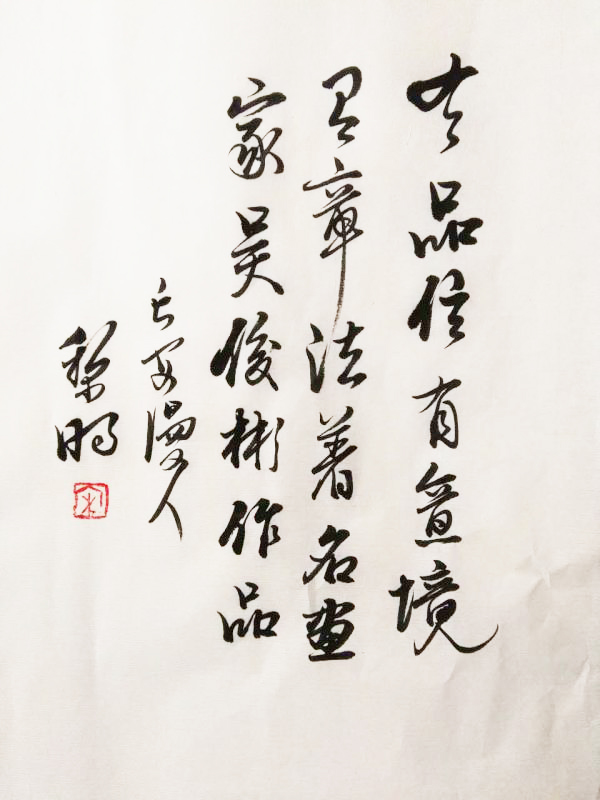 有品位有意境
有章法著名画
家吴俊彬作品
长安漫人
黎明